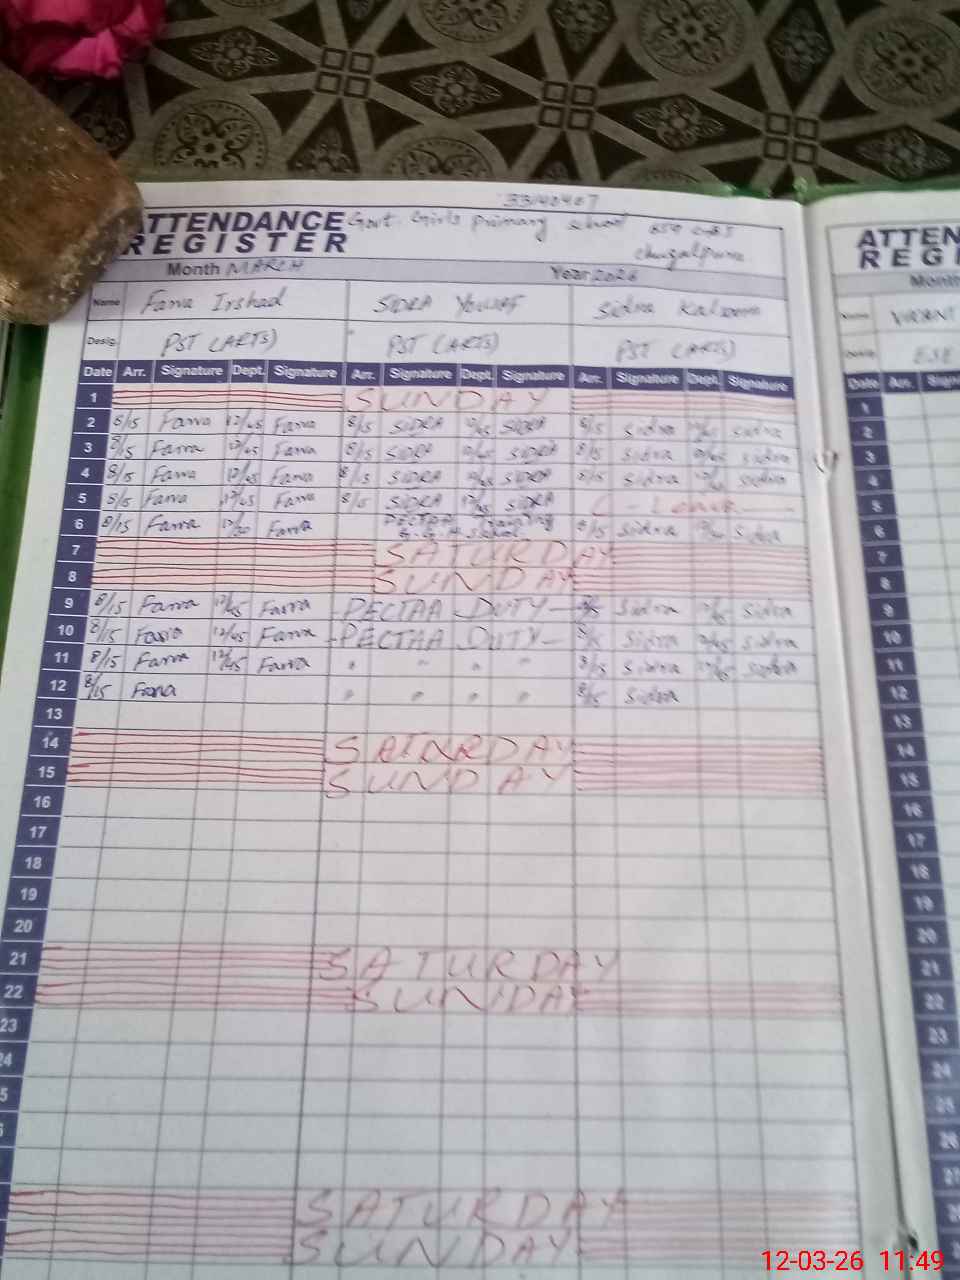 33140407
ATTENDANCE Govt. Girls primary school
REGISTER
Month MARCH Year 2026
Name Farwa Irshad SIDRA YOUSAF Sidra Kalsoom
Desig. PST (ARTS) PST (ARTS) PST (ARTS)
Date Arr. Signature Dept. Signature Arr. Signature Dept. Signature Arr. Signature Dept. Signature
1 SUNDAY
2 8/15 Farwa 12/45 Farwa 8/15 SIDRA 12/45 SIDRA 8/15 Sidra 12/45 Sidra
3 8/15 Farwa 12/45 Farwa 8/15 SIDRA 12/45 SIDRA 8/15 Sidra 12/45 Sidra
4 8/15 Farwa 12/45 Farwa 8/15 SIDRA 12/45 SIDRA 8/15 Sidra 12/45 Sidra
5 8/15 Farwa 12/45 Farwa 8/15 SIDRA 12/45 SIDRA C - Leave
6 8/15 Farwa 12/30 Farwa PECTAA Training 8/15 Sidra Sidra
7 SATURDAY
8 SUNDAY
9 8/15 Farwa 12/45 Farwa - PECTAA DUTY - 8/15 Sidra 12/45 Sidra
10 8/15 Farwa 12/45 Farwa - PECTAA DUTY - 8/15 Sidra 12/45 Sidra
11 8/15 Farwa 12/45 Farwa " " " " 8/15 Sidra 12/45 Sidra
12 8/15 Farwa " " " " 8/15 Sidra
13
14 SATURDAY
15 SUNDAY
16
17
18
19
20
21 SATURDAY
22 SUNDAY
23
24
5
SATURDAY
SUNDAY
ATTEN
REGI
Month
Name
Date Arr. Sign
1
2
3
4
5
6
7
8
9
10
11
12
13
14
15
16
17
18
19
20
21
22
23
24
25
26
27
12-03-26 11:49